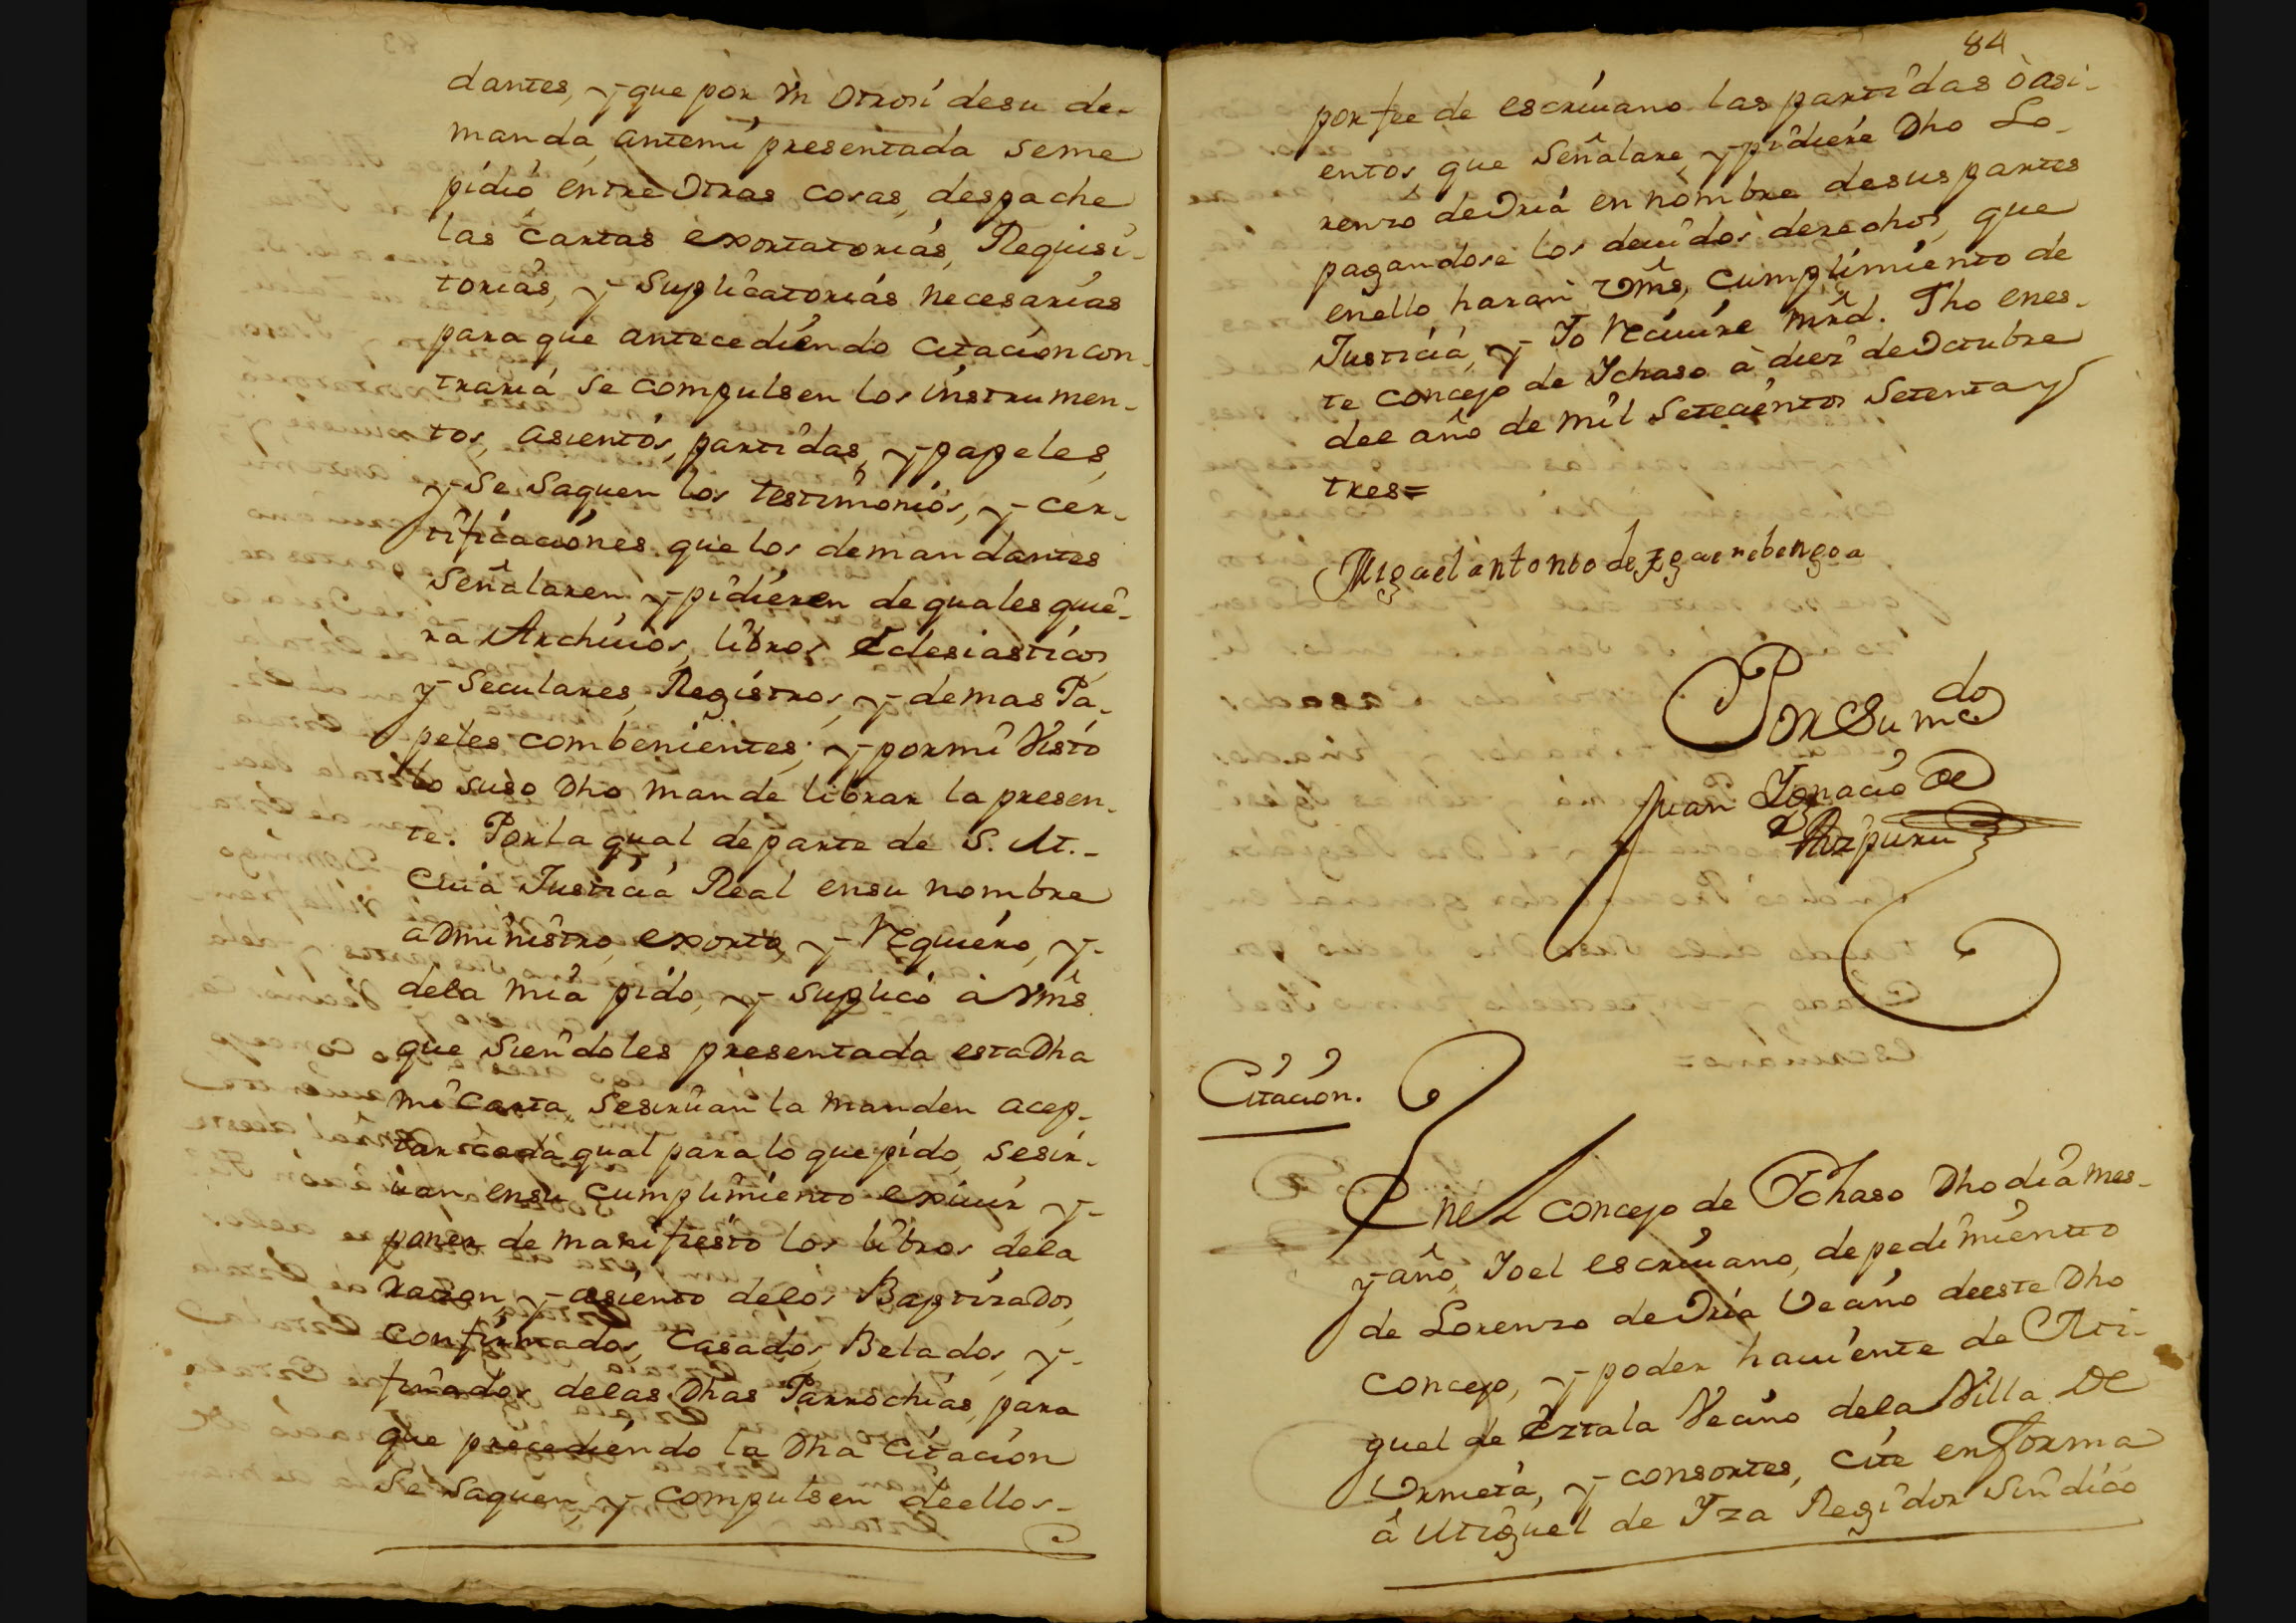 dantes, y que por Vn otrosi desu de-
manda, antemi presentada seme
pidió, entre Otras cosas, despache
las cartas exortatorias, Requisi-
torias, y Suplicatorias necesarias
para que antecediendo Citacion con-
traria se compulsen los instrumen-
tos, asientos, partidas, y papeles,
y se saquen los testimonios, y cer-
tificaciones que los demandantes
Señalaren, y pidieren de quales quie-
ra Archiuos, libros Eclesiasticos,
y Seculares, Registros, y demas Pa-
peles combenientes; y por mi Visto
lo suso Dho mande librar la presen-
te. Por la qual de parte de S. M.-
Cuia Justicia Real ensu nombre
administro, exorto, y Requiero, y-
dela mia pido, y suplico à Vms.
que siendoles presentada esta Dha
mi Carta, Sesiruan la manden acep-
tar cada qual para lo que pido, sesir-
uan ensu cumplimiento exiuir y-
poner de manifiesto los libros dela
razon, y asiento delos Baptizados,
Confirmados, Casados, Belados, y-
finados delas Dhas Parrochias, para
que precediendo la Dha Citacion
Se Saquen, y compulsen deellos-
84
por fee de escriuano las partidas ò asi-
entos que Señalare, y pidiere Dho Lo-
renzo de Oria en nombre desus partes
pagandose los deuidos derechos, que
enello haran Vms, Cumplimiento de
Justicia, y Yo Reciuire mrd. Fho enes-
te concejo de Ychaso à diez de Octubre
del año de mil Setecientos Setenta y
tres=
Miguel antonio de Eguerebengoa
Por Su mdo
Juan Ygnacio de
Aizpuru
Citacion.
En el concejo de Ychaso Dho dia mes-
y año, Yo el escriuano, de pedimiento
de Lorenzo de Oria Vecino deeste Dho
concejo, y poder hauiente de Mi-
guel de Eztala Vecino dela Villa De
Urnieta, y consortes, Cite en forma
â Miguel de Yza Regidor Sindico